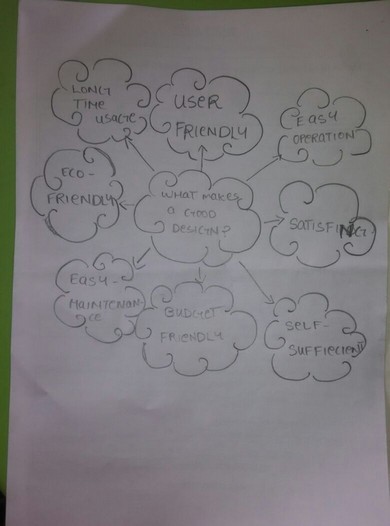 LONG
TIME
USAGE
USER
FRIENDLY
EASY
OPERATION
ECO-
FRIENDLY
WHAT MAKES
A GOOD
DESIGN?
SATISFING.
EASY-
MAINTENAN-
CE
BUDGET
FRIENDLY
SELF-
SUFFIECIENT